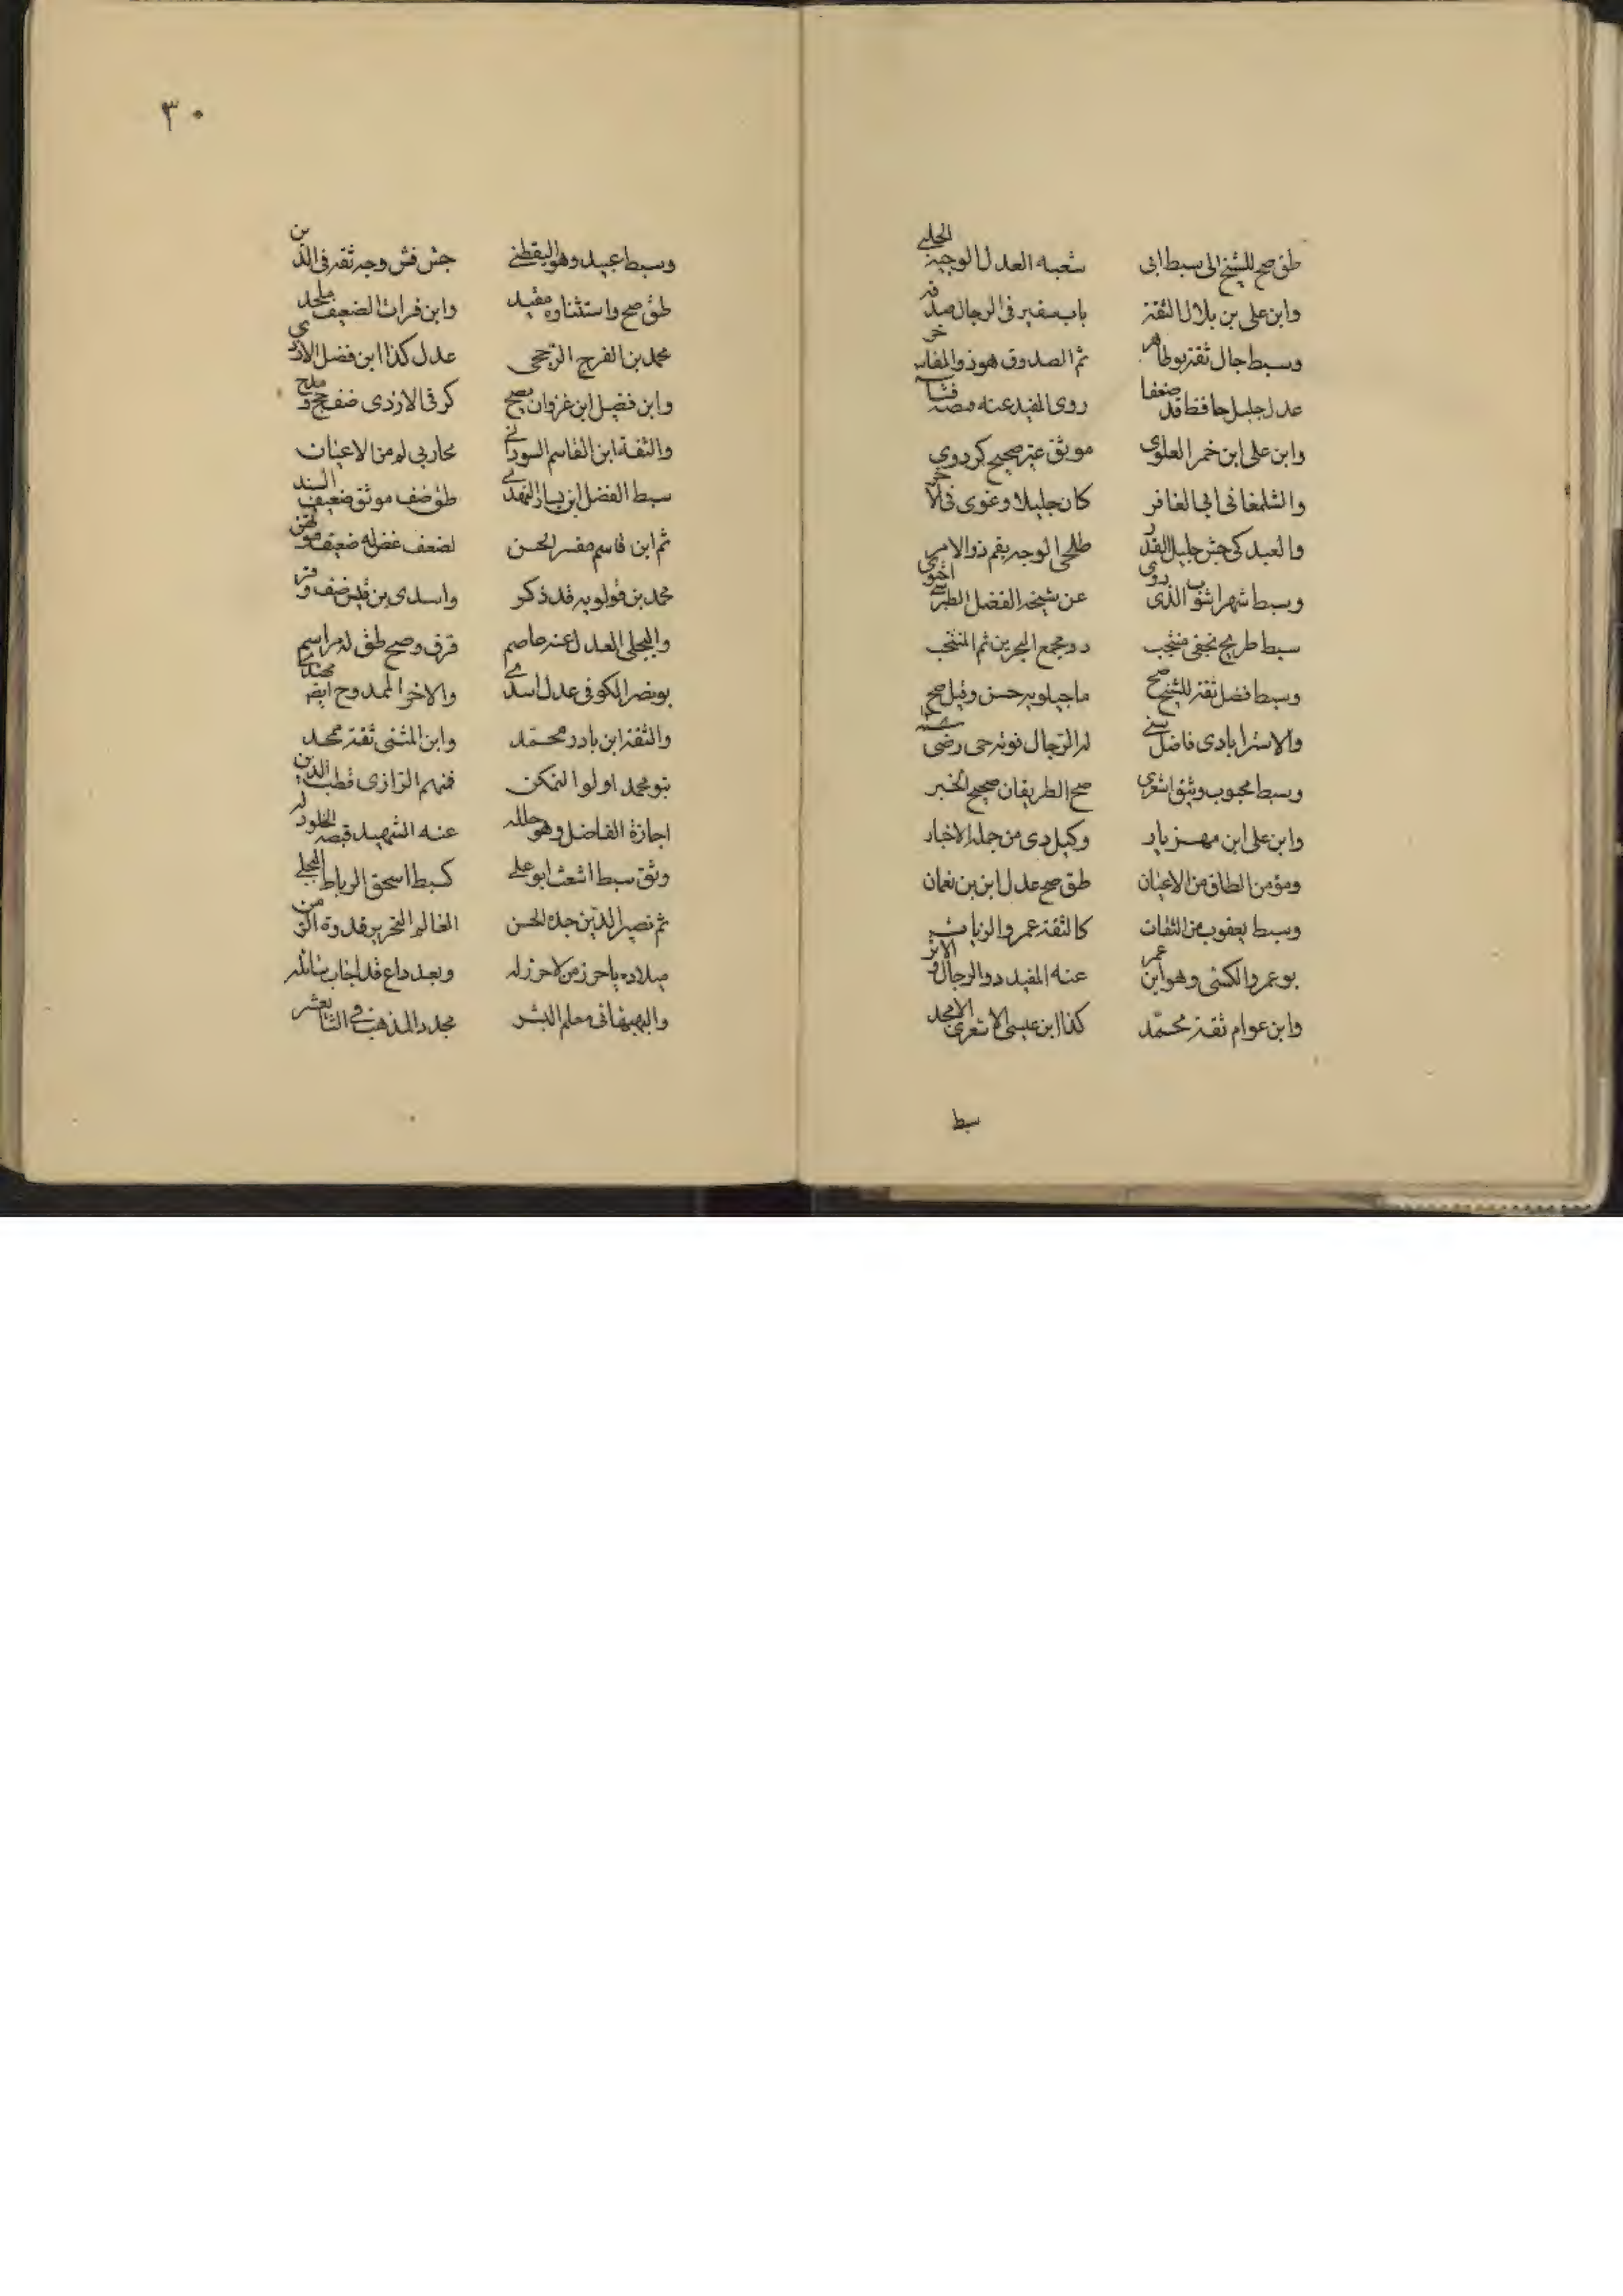 طق صح للشيخ الى سبط ابى شعبه العدل الوجيه الحلبى
وابن على بن بلال الثقة باب سفير فى الرجال صدقه
وسبط جال ثقة بو طاهر ثم الصدوق هو ذو المفاخر
عدل جليل حافظ قد ضعفا روى المفيد عنه
وابن على ابن خمر العلوى موثق عنه صحيح كردوى
والشلمغانى ابى الغافر كان جليلا وغوى فى الآخر
والعبدكى جش جليل القدر طلحى الوجه بقم ذو الامر
وسبط شهراشوب الذى روى عن شيخه الفضل الطبرسى
سبط طريح نجفى منتجب دو مجمع البحرين ثم المنتخب
وسبط فضل ثقة للشيخ صح ماجيلويه حسن وقيل صح
والاسترابادى فاضل له الرجال فوته رضى
وسبط محبوب وثيق اشعرى صح الطريقان صحيح الخبر
وابن على ابن مهزيار وكيل دى من جملة الاخيار
ومؤمن الطاق من الاعيان طق صح عدل ابن بن نعمان
وسبط يعقوب من الثقات كالثقة عمرو الزيات
بو عمرو الكشى وهو ابن عمر عنه المفيد دو الرجال والاثر
وابن عوام ثقة محمّد كذا ابن عيسى الاشعرى الامجد
سبط
٣٠
وسبط عبيد وهو اليقطينى جش فش وجه ثقة فى الدين
طق صح واستثناوه مفيد وابن فرات الضعيف ملحد
محمد بن الفرج الرّخجى عدل كذا ابن فضل الازدى
وابن فضيل ابن غزوان يصح كرفى الازدى ضف جخ
والثقة ابن القاسم السورانى محاربى له من الاعيان
سبط الفضل ابن يسار النهدى طق ضف موثق ضعيف السند
ثم ابن قاسم مفسر الحسن لضعف ضعيف
محمد بن قولويه قد ذكر واسدى بن قيس ضف وقر
والبجلى العدل عنه عاصم قرف وصح طق له مراسم
بو نصر الكوفى عدل اسدى والاخر الممدوح ايضا
والثقة ابن بادر محمّد وابن المثنى ثقة محمد
بنو محمد اولو التمكن فمنهم الرازى قطب الدين
اجازة الفاضل وهو حلله عنه الشهيد قبضه الخلود له
وثق سبط اشعث ابو على كسبط اسحق الرباط البجلى
ثم نصير الدين جده الحسن العالم النحرير قدوة الزمن
ميلاده يا حرز من لا حرز له وبعد داع قد اجاب سائله
والبهبهانى معلم البشر مجدد المذهب فى الثانى عشر